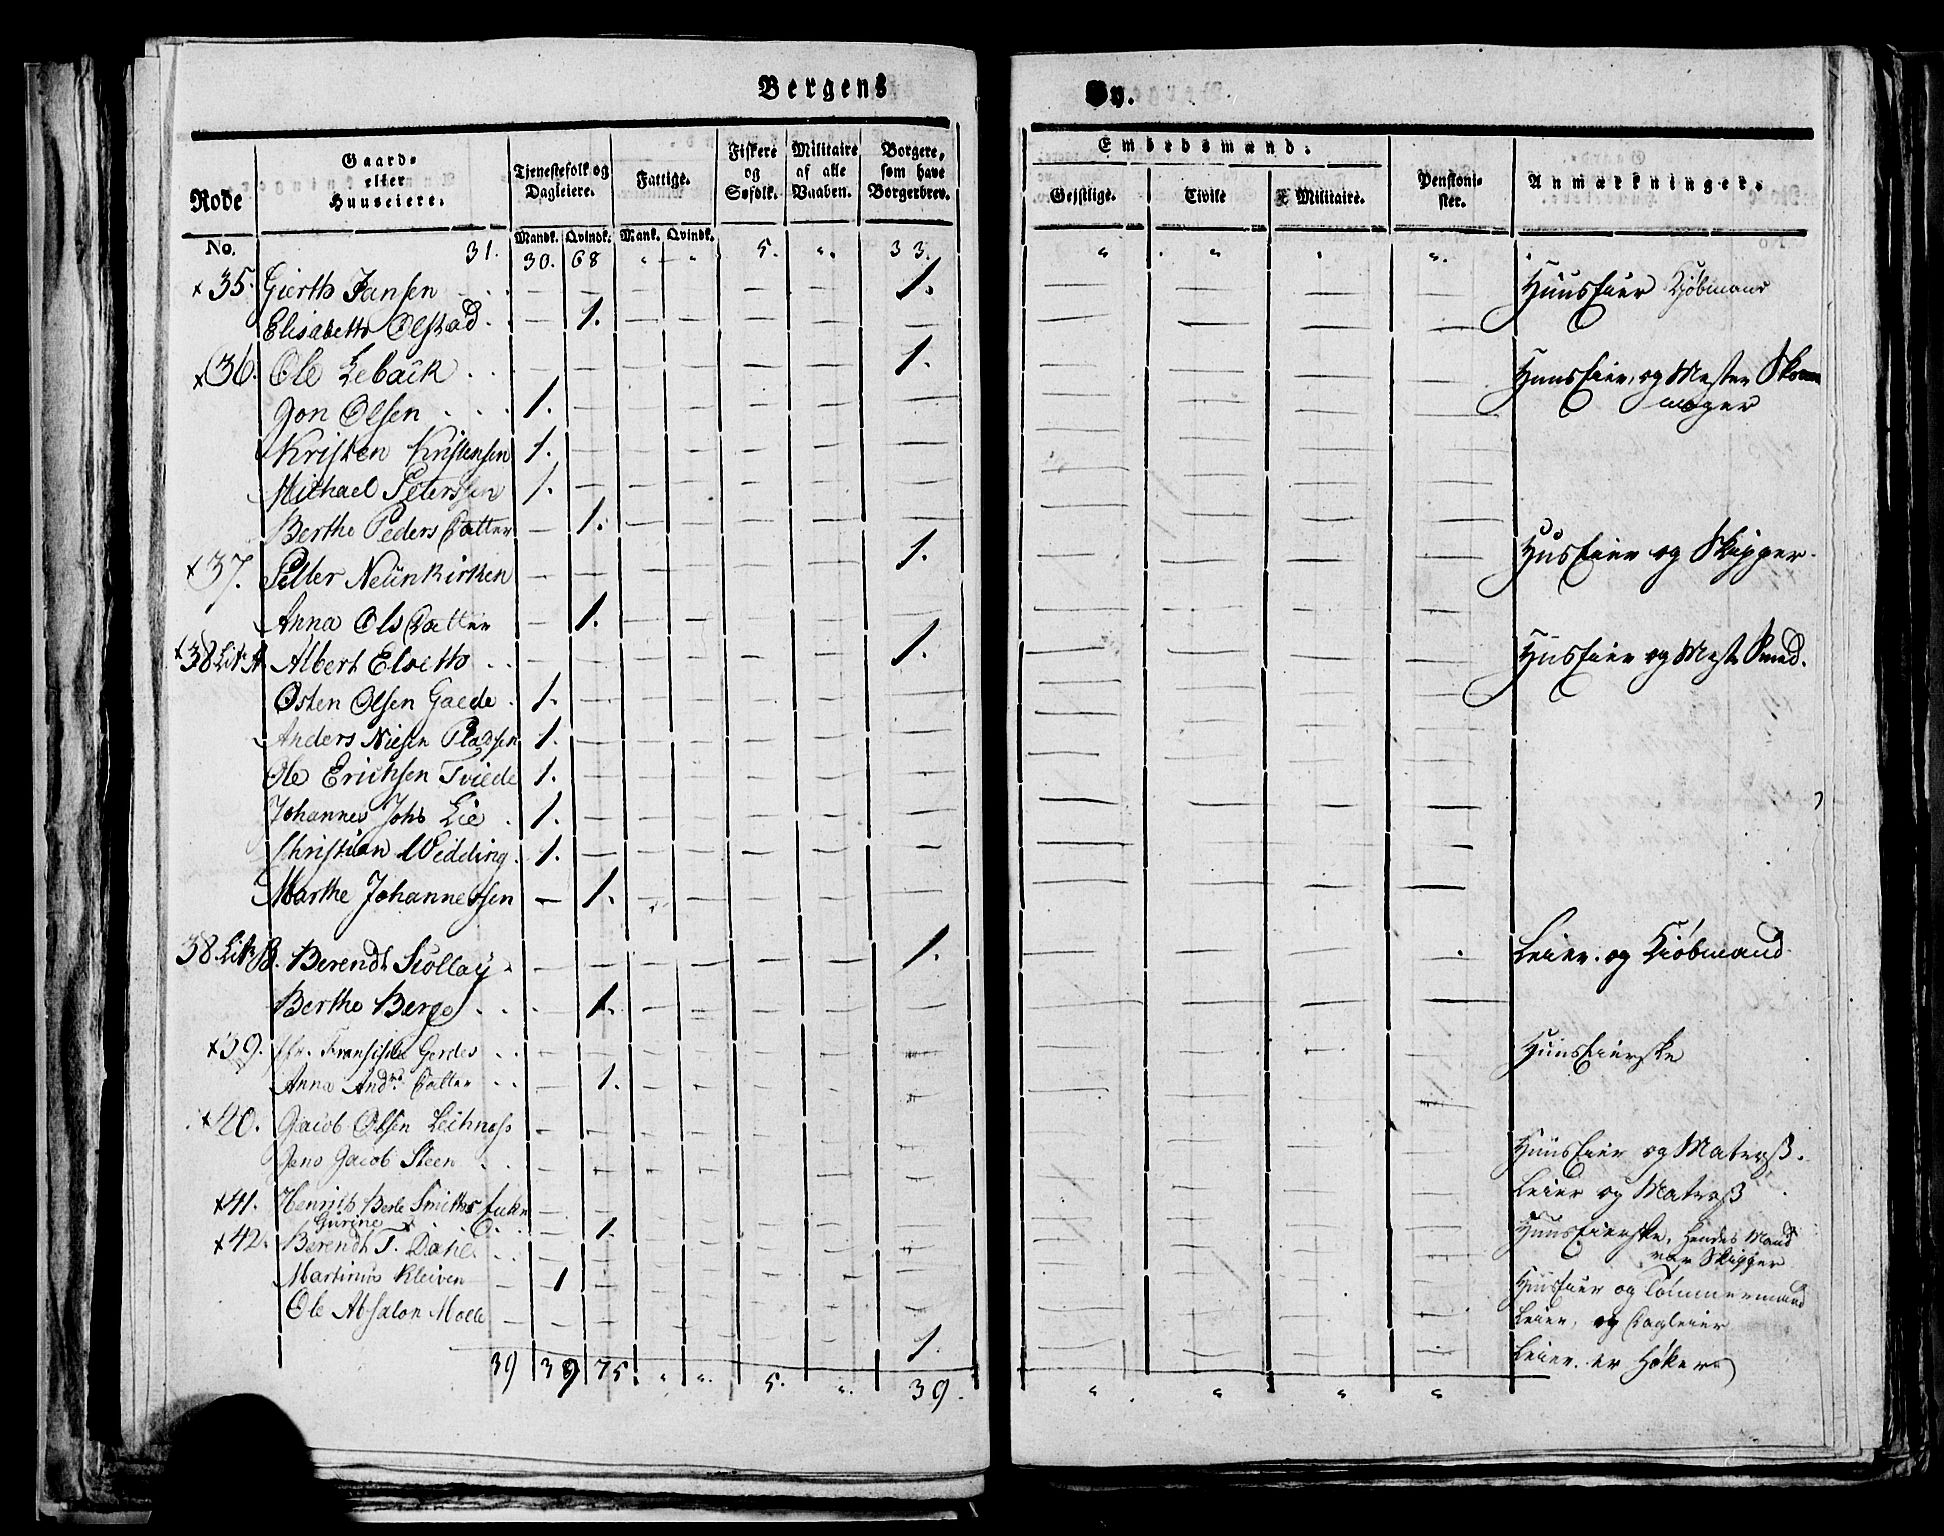 Bergens By.
Rode No. | Gaard- eller Huuseiere. | Tjenestefolk og Dagleiere. Mandk. Qvindk. | Fattige. Mank. Qvindk. | Fiskere og Søfolk. | Militaire af alle Vaaben. | Borgere, som have Borgerbrev. | Embedsmænd. Gejstlige. | Civile | Militaire. | Pensionister. | Anmærkninger.
31. 30. 68 " " 5. ". 33. " " " ".
x 35. Gierth Jansen 1. Huuseier Kjøbmand
Elisabeth Olstad. 1.
x 36. Ole Leback 1. Huuseier, og Mester Skom
mager
Jon Olsen 1.
Kristen Kristensen 1.
Michael Peterssen 1.
Berthe Peders Datter 1.
x 37. Petter Neünkirken 1. Huseier og Skipper.
Anna Ols Datter 1.
x 38 Lit. A Albert Elvetto 1. Huseier og Mest Smed.
Osten Olsen Gaede 1.
Anders Nielsen Pladsen 1.
Ole Erichsen Tviede 1.
Johannes Johs Lie 1.
Christian Wedding. 1.
Marthe Johannessen 1.
38. Lit. B. Berendt Stollay 1. Leier og Kiøbmand
Berthe Berge 1.
x 39. Fr. Fransiske Gerdes Huuseierske
Anna And. Datter 1.
x 40. Jacob Olsen Leihness Huuseier og Matroß.
Jens Jacob Steen Leier og Matroß
x 41. Henrich Berle Smiths Enke Huuseierske, hendes Mand
var Skipper
Gurine 1.
x 42. Berendt T. Dahl Huuseier og Tømmermand
Martinus Kleiven 1 Leier, og Dagleier
Ole Absalon Moele 1. Leier er Høker
39 39 75. " ". 5. ". 39. " " " "